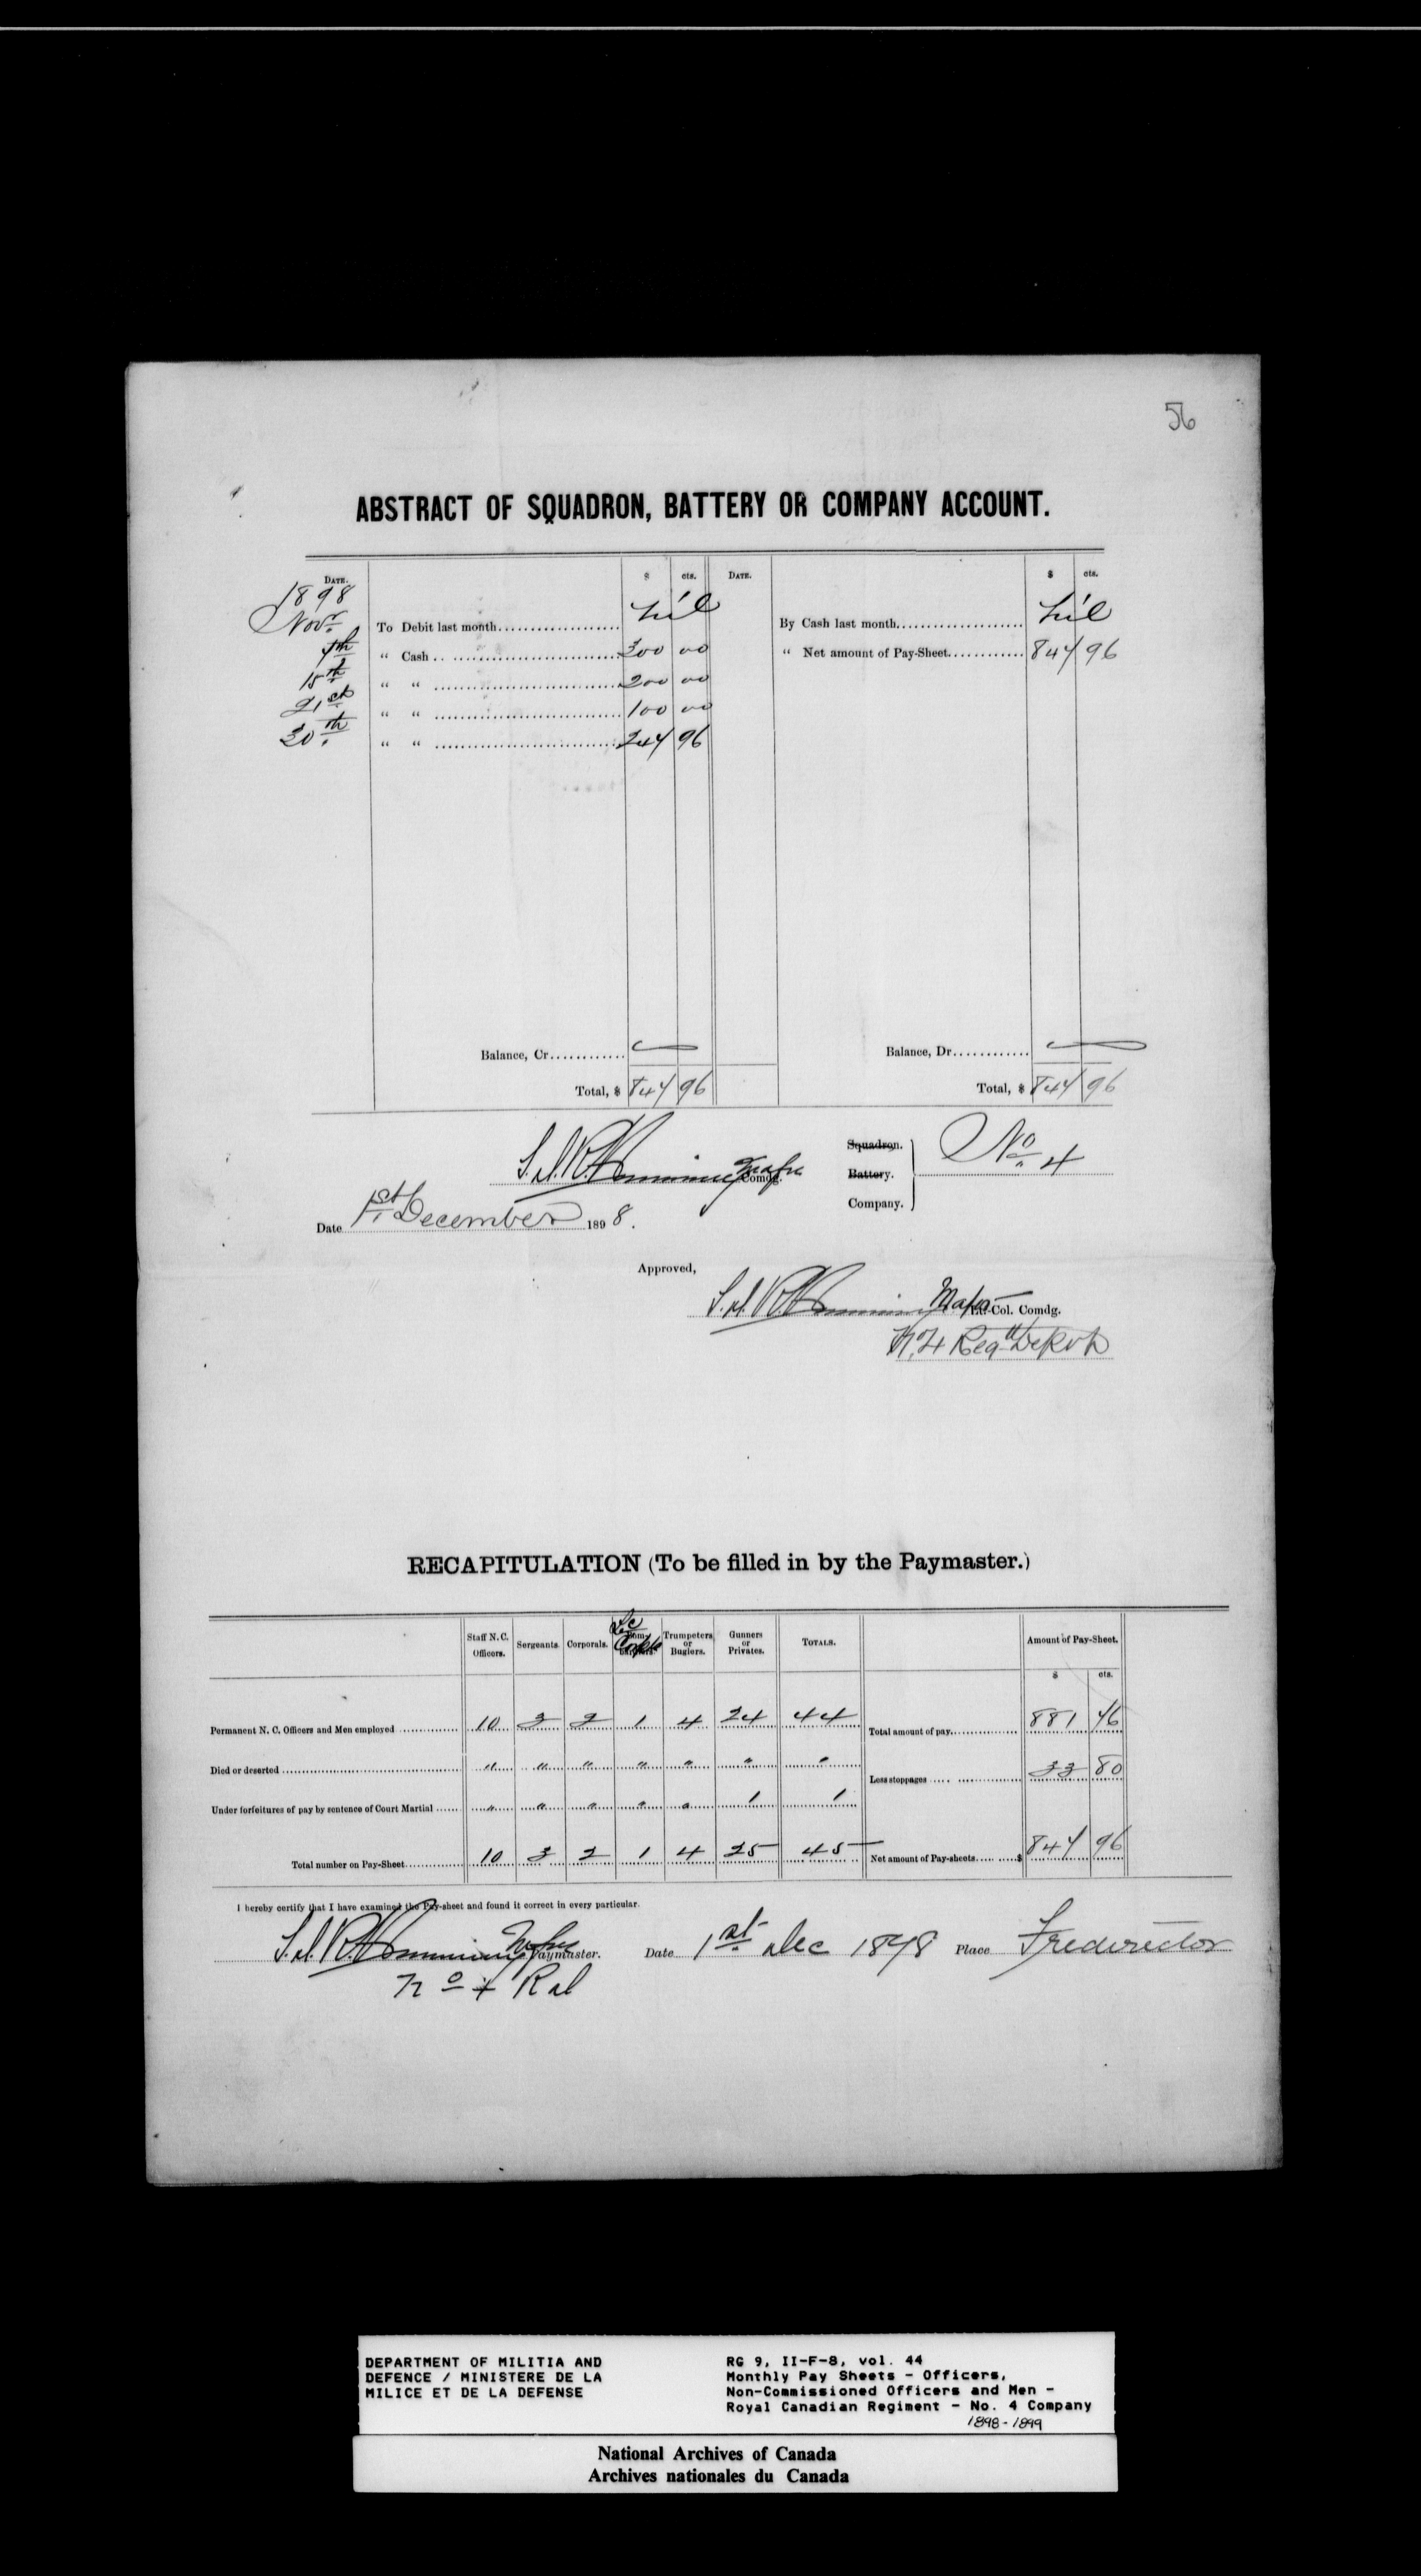 56
ABSTRACT OF SQUADRON, BATTERY OR COMPANY ACCOUNT.
DATE. $ cts. DATE. $ cts.
1898
Novr To Debit last month nil By Cash last month nil
7th " Cash 300 00 " Net amount of Pay-Sheet 847 96
15th " " 200 00
21st " " 100 00
30th " " 247 96
Balance, Cr. Balance, Dr.
Total, $ 847 96 Total, $ 847 96
Major Comdg.
Squadron.
Battery.
Company.
No 4
Date 1st December 1898.
Approved,
Major Lt.-Col. Comdg.
No 4 Regtl Depot
RECAPITULATION (To be filled in by the Paymaster.)
Staff N.C. Officers. Sergeants. Corporals. Lce Corpls Trumpeters or Buglers. Gunners or Privates. TOTALS. Amount of Pay-Sheet.
$ cts.
Permanent N. C. Officers and Men employed 10 3 2 1 4 24 44 Total amount of pay 881 76
Died or deserted " " " " " " " Less stoppages 33 80
Under forfeitures of pay by sentence of Court Martial " " " " " 1 1
Total number on Pay-Sheet 10 3 2 1 4 25 45 Net amount of Pay-sheets $ 847 96
I hereby certify that I have examined the Pay-sheet and found it correct in every particular.
Major Paymaster. Date 1st Dec 1898 Place Fredericton
No 4 R.d
DEPARTMENT OF MILITIA AND
DEFENCE / MINISTERE DE LA
MILICE ET DE LA DEFENSE
RG 9, II-F-8, vol. 44
Monthly Pay Sheets - Officers,
Non-Commissioned Officers and Men -
Royal Canadian Regiment - No. 4 Company
1898-1899
National Archives of Canada
Archives nationales du Canada